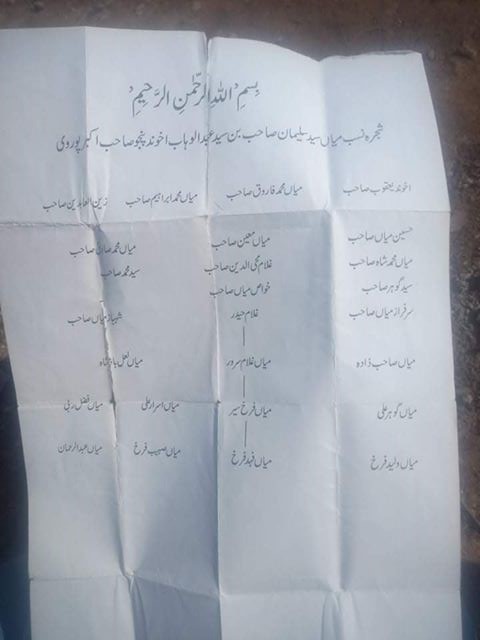 بِسْمِ اللهِ الرَّحْمٰنِ الرَّحِيْمِ
شجره نسب میاں سید سلیمان صاحب بن سید عبدالوہاب اخوند پنجو صاحب اکبر پوروی
اخوند یعقوب صاحب میاں محمد فاروق صاحب میاں محمد ابراہیم صاحب زین العابدین صاحب
حسین میاں صاحب میاں معین صاحب میاں محمد صادق صاحب
میاں محمد شاہ صاحب غلام محی الدین صاحب سید محمد صاحب
سید گوہر صاحب خواص میاں صاحب
سرفراز میاں صاحب غلام حیدر شہباز میاں صاحب
میاں صاحب ذادہ میاں غلام سرور میاں لعل بادشاہ
میاں گوہر علی میاں فرخ سیر میاں اسرار علی میاں فضل ربی
میاں ولید فرخ میاں فہد فرخ میاں صہیب فرخ میاں عبدالرحمان